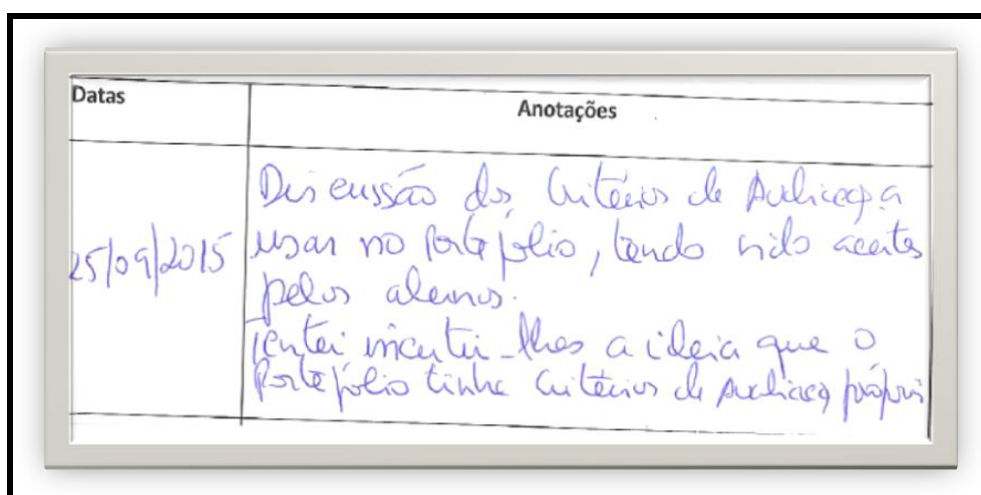 Datas
Anotações
25/09/2015
Discussão dos Critérios de Avaliação a
usar no Portefólio, tendo sido aceites
pelos alunos.
Tentei incutir-lhes a ideia que o
Portefólio tinha Critérios de Avaliação próprios